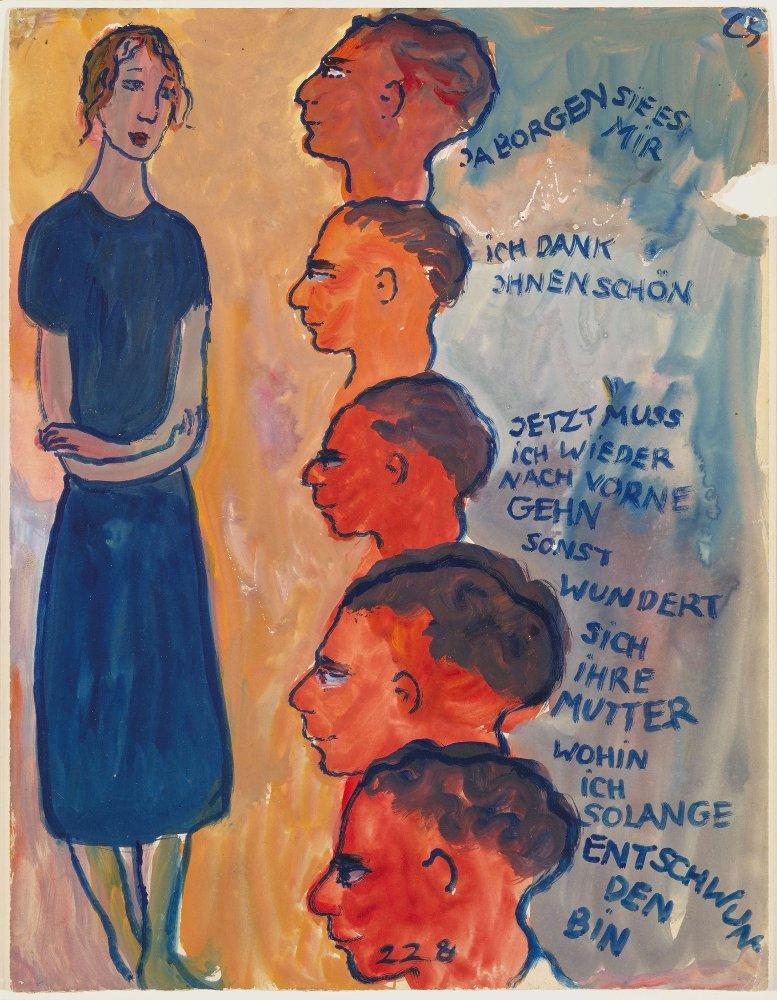 CS
JA BORGEN SIE ES
MIR
ICH DANK
IHNEN SCHÖN
JETZT MUSS
ICH WIEDER
NACH VORNE
GEHN
SONST
WUNDERT
SICH
IHRE
MUTTER
WOHIN
ICH
SOLANGE
ENTSCHWUN
DEN
BIN
228